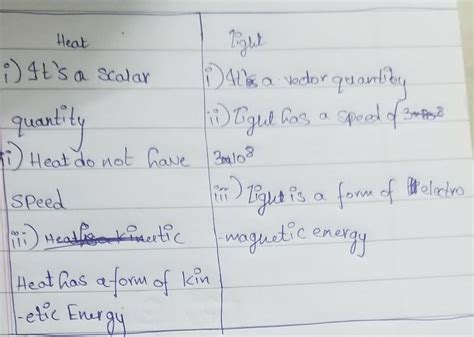 Heat
i) It's a scalar
quantity
ii) Heat do not have
speed
iii) Heat is a kinetic
Heat has a form of kin
-etic Energy
Light
i) It's a vector quantity
ii) Light has a speed of
3x10⁸
iii) Light is a form of electro
-magnetic energy